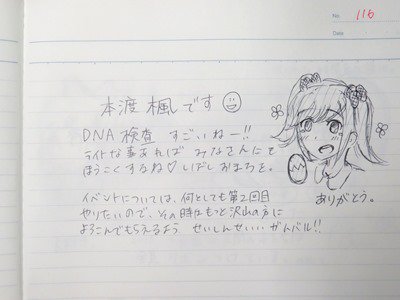 No. 116
Date
本渡 楓です
DNA 検査 すごいねー!!
ライトな事あれば みなさんにも
ほうこくするね♡ しばし おまちを。
イベントについては、何としても第2回目
やりたいので、その時はもっと沢山の方に
よろこんでもらえるよう せいしんせいい ガンバル!!
ありがとう。